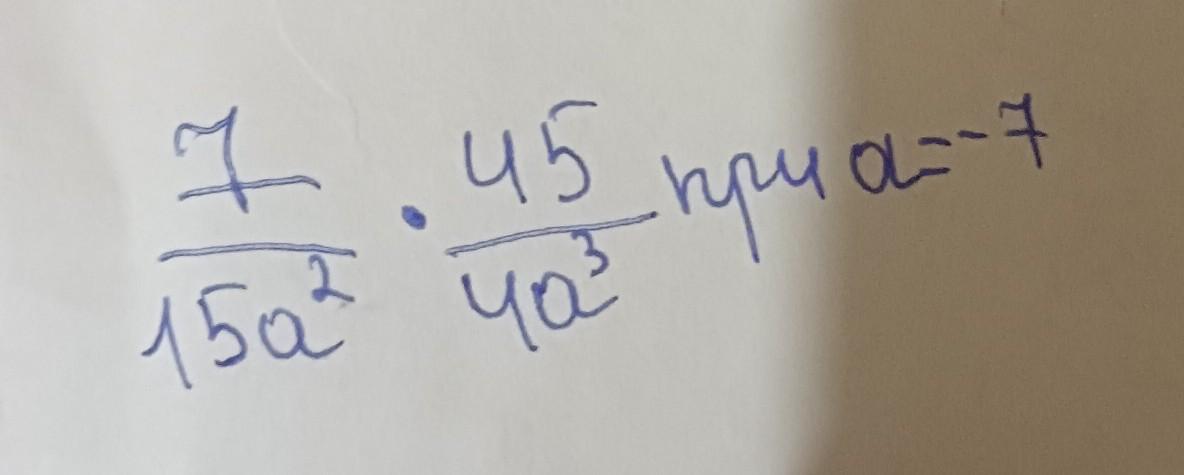 7/15a² · 45/4a³ при a=-7